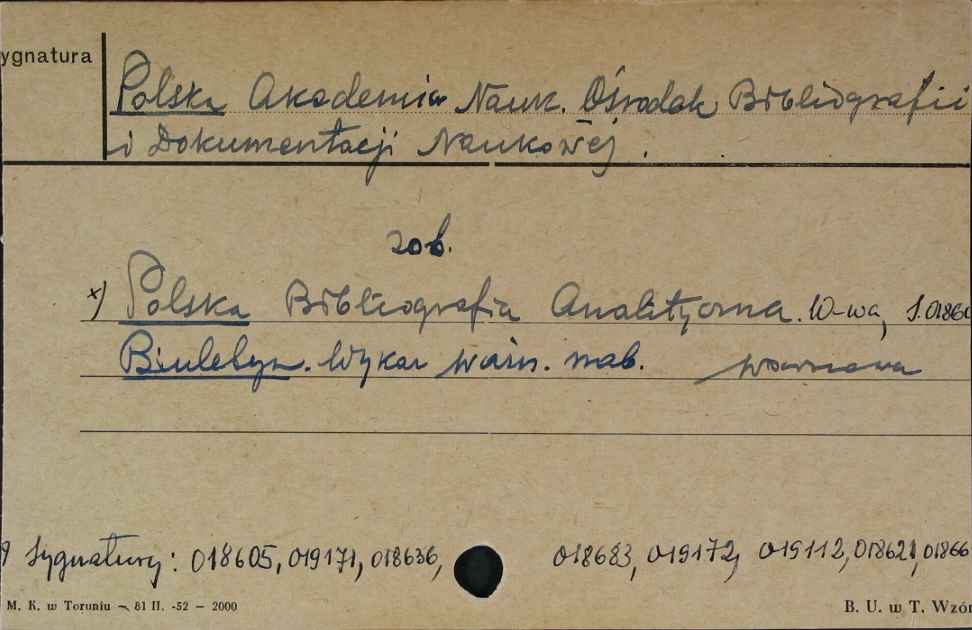 ygnatura
Polska Akademia Nauk. Ośrodek Bibliografii
i Dokumentacji Naukowej.
zob.
x) Polska Bibliografia Analityczna. W-wa, S.01860
Biuletyn. Wykaz ważn. nab. Warszawa
Sygnatury: 018605, 019171, 018636, 018683, 019172, 019112, 018621, 01866
M. K. w Toruniu — 81 II. -52 — 2000
B. U. w T. Wzór